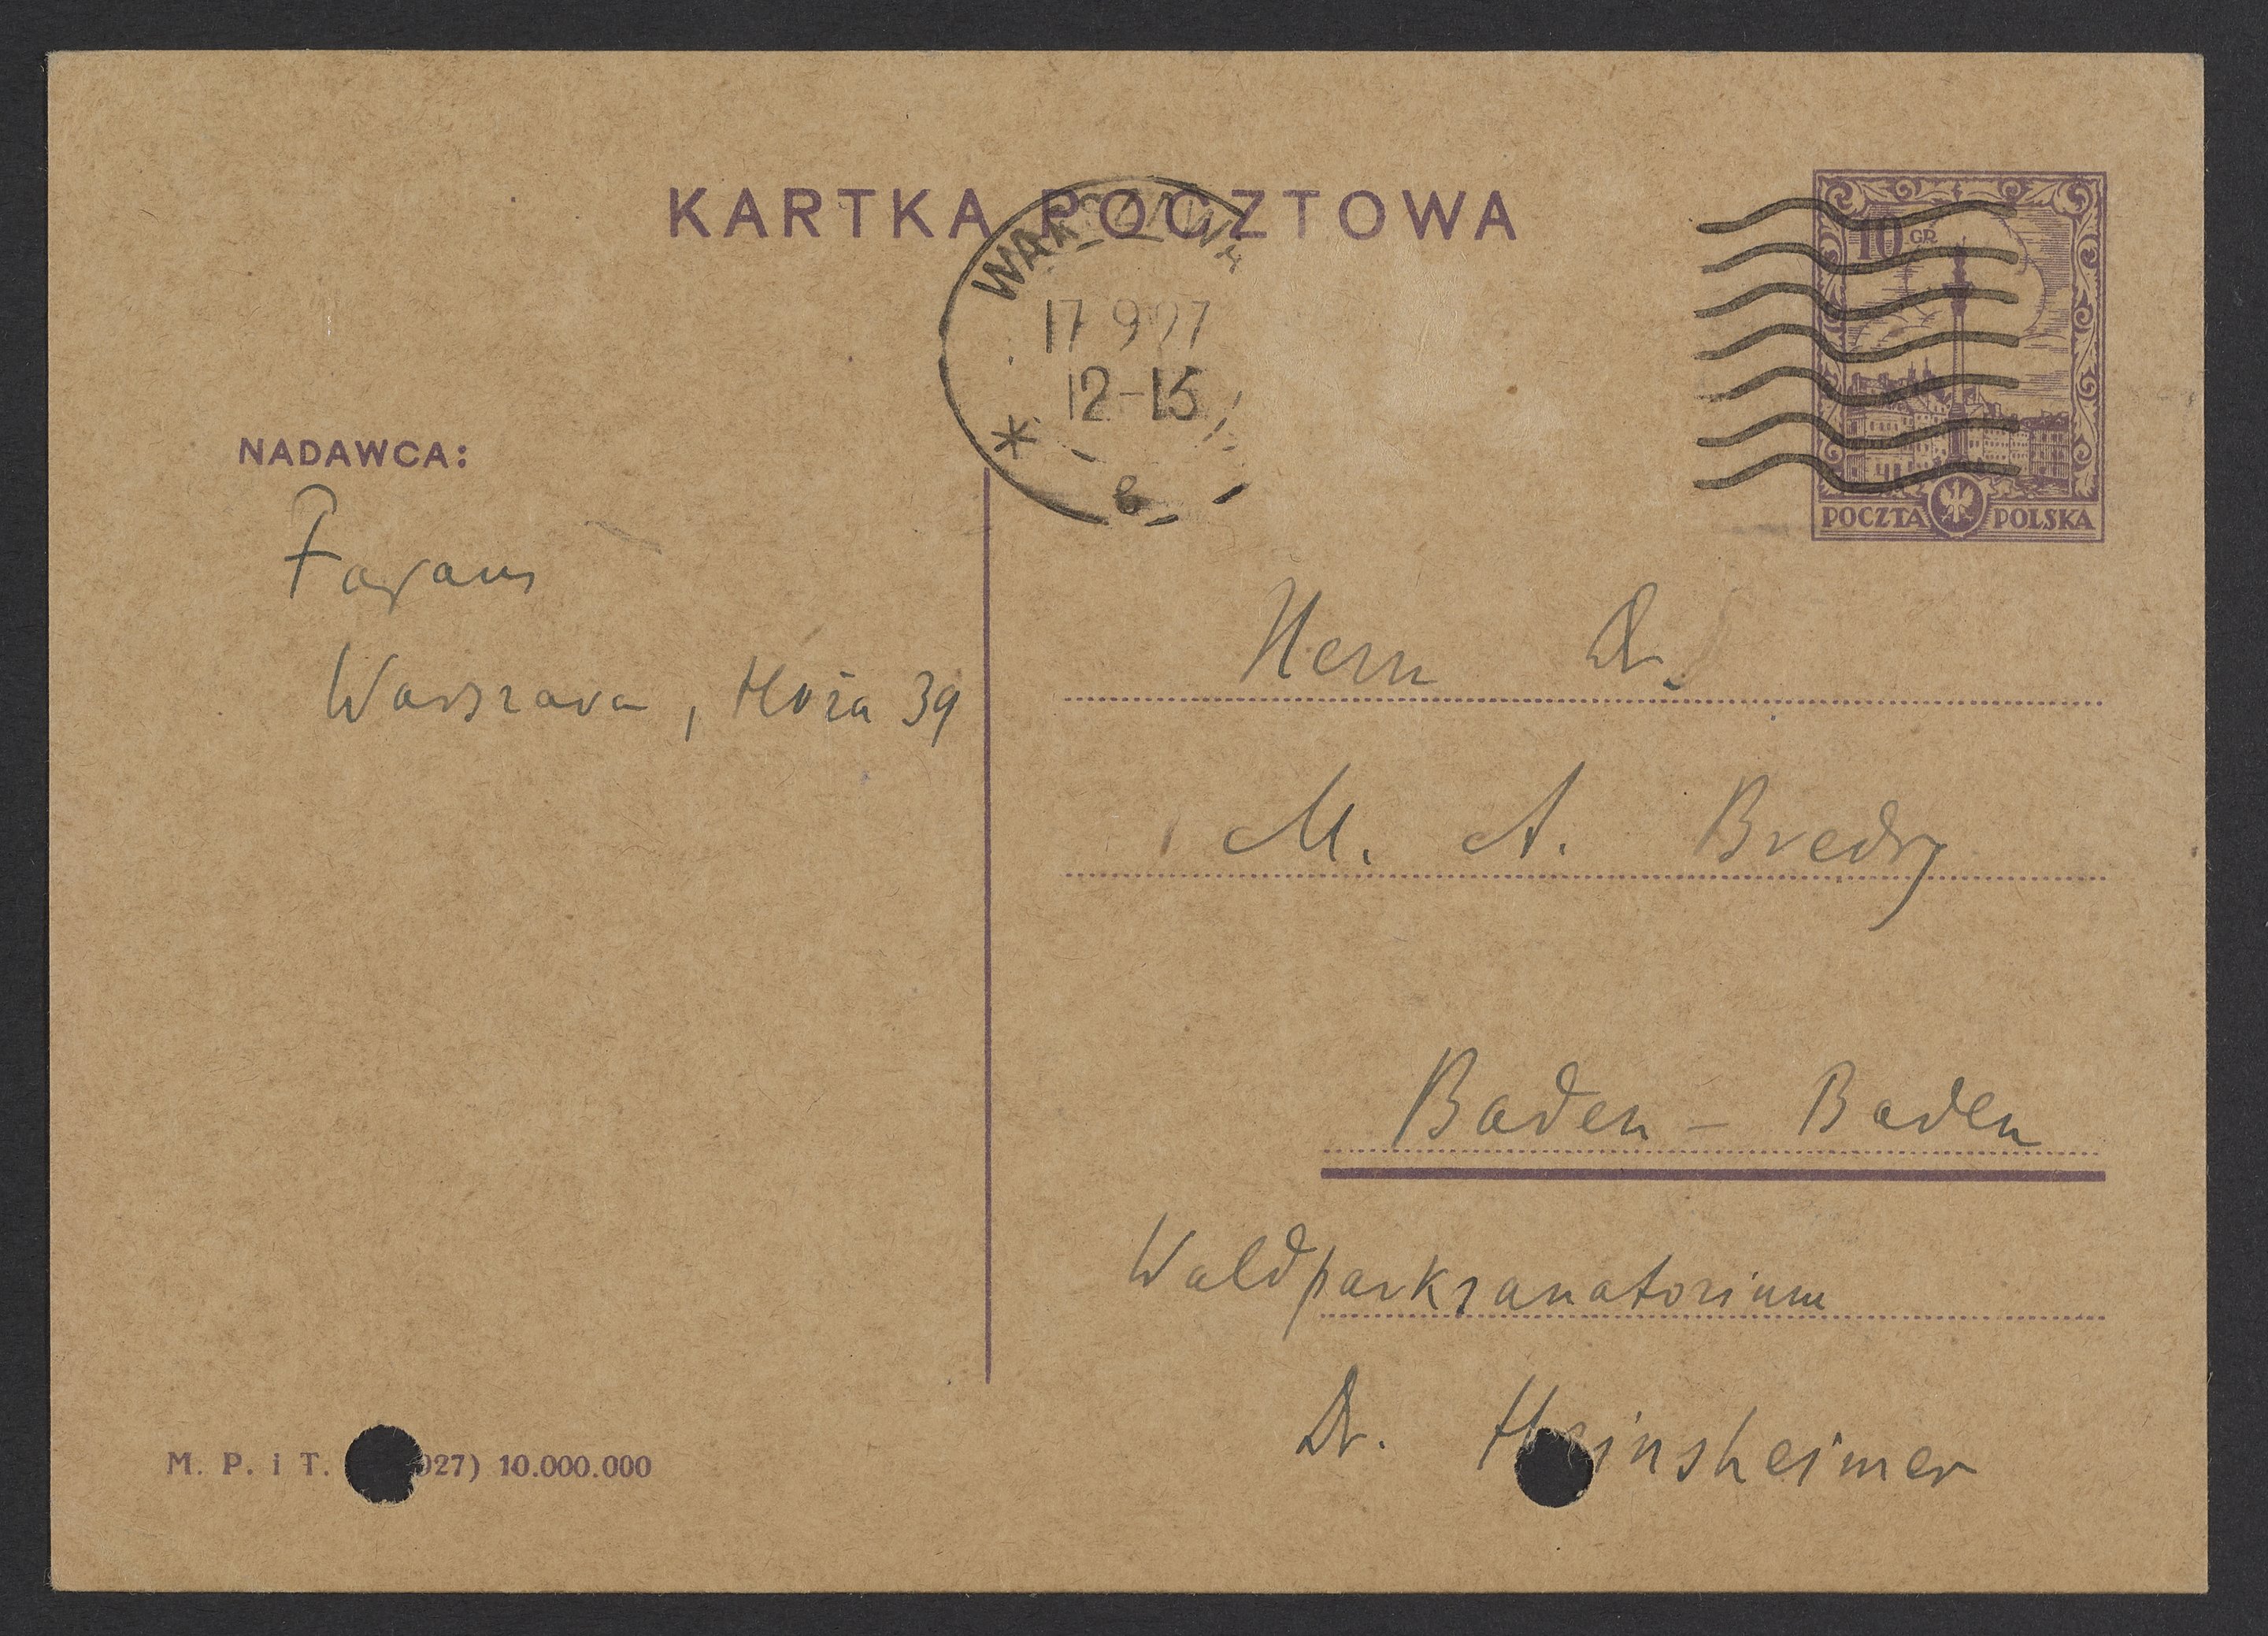 KARTKA POCZTOWA
WARSZAWA
17 9 27
12-15
*
10 GR
POCZTA POLSKA
NADAWCA:
Warszawa, Hoża 39
Herrn Dr.
M. A. Bredig
Baden - Baden
Waldparksanatorium
Dr. Heinsheimer
M. P. i T. 027) 10.000.000